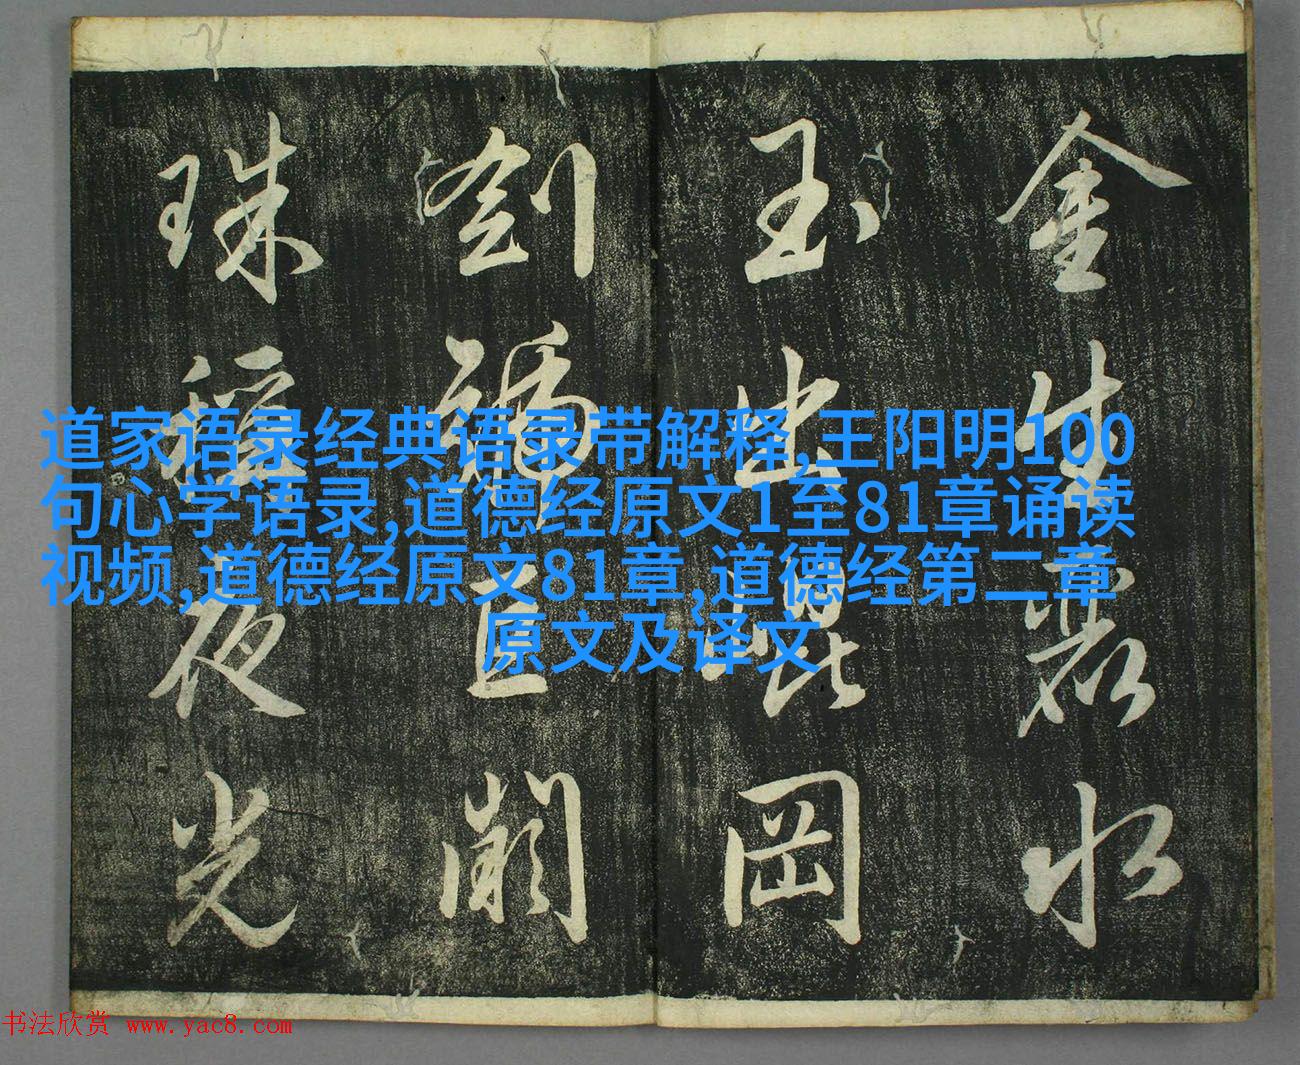 金生麗水
玉出崐岡
劍號巨闕
珠稱夜光
道家语录经典语录带解释,王阳明100
句心学语录,道德经原文1至81章诵读
视频,道德经原文81章,道德经第二章
原文及译文
书法欣赏 www.yac8.com